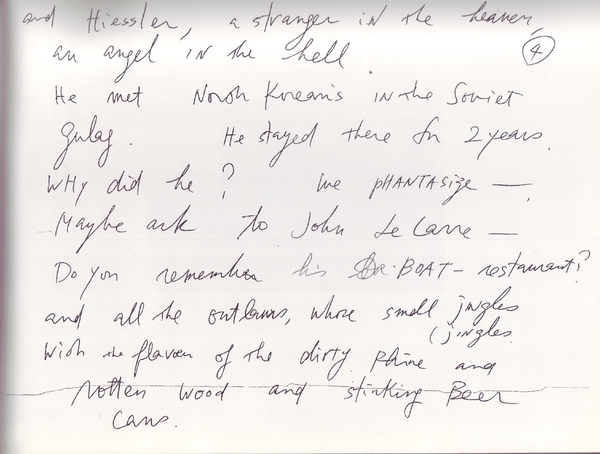 and Hiessler, a stranger in the heaven,
an angel in the hell.
4
He met North Korean's in the Soviet
gulag. He stayed there for 2 years.
WHY did he? We PHANTASIZE —
Maybe ask to John Le Carre —
Do you remember his BOAT - restaurant?
and all the outlaws, whose small jingles
(jingles
With the flavor of the dirty and
rotten wood and stinking Beer
Cans.